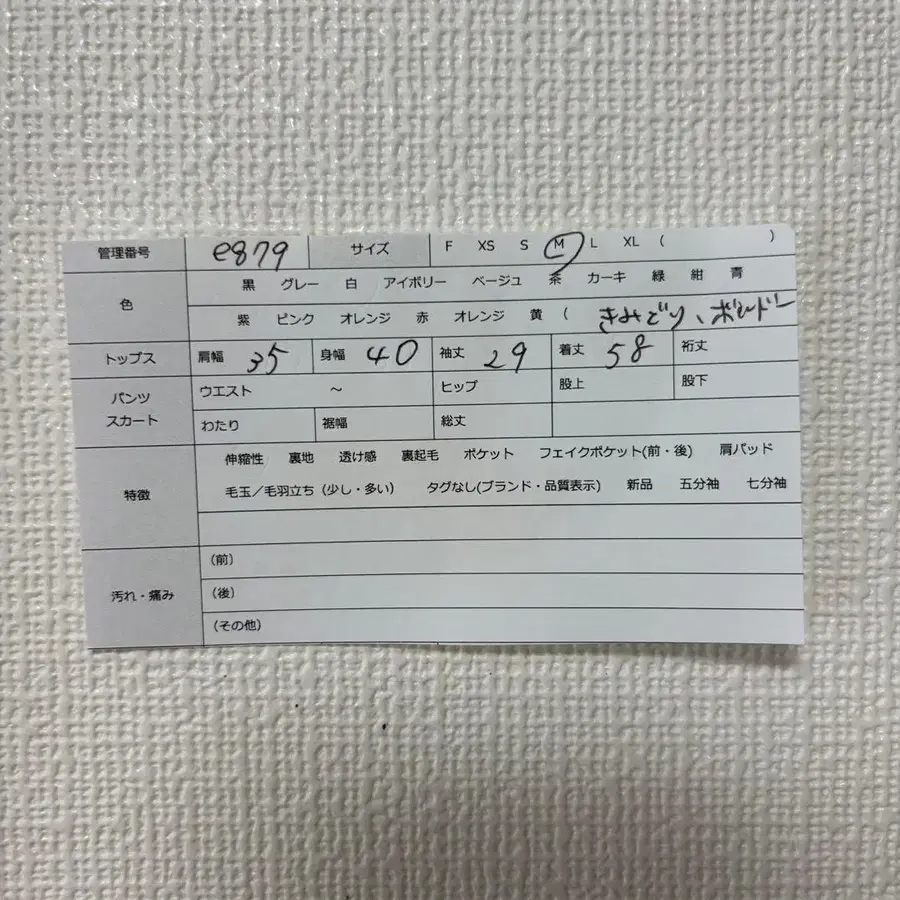 管理番号 e879 サイズ F XS S M L XL ( )
色 黒 グレー 白 アイボリー ベージュ 茶 カーキ 緑 紺 青
紫 ピンク オレンジ 赤 オレンジ 黄 ( きみどり、ボルドー
トップス 肩幅 35 身幅 40 袖丈 29 着丈 58 裄丈
パンツ スカート ウエスト ～ ヒップ 股上 股下
わたり 裾幅 総丈
特徴 伸縮性 裏地 透け感 裏起毛 ポケット フェイクポケット(前・後) 肩パッド
毛玉／毛羽立ち（少し・多い） タグなし(ブランド・品質表示) 新品 五分袖 七分袖
汚れ・痛み （前）
（後）
（その他）